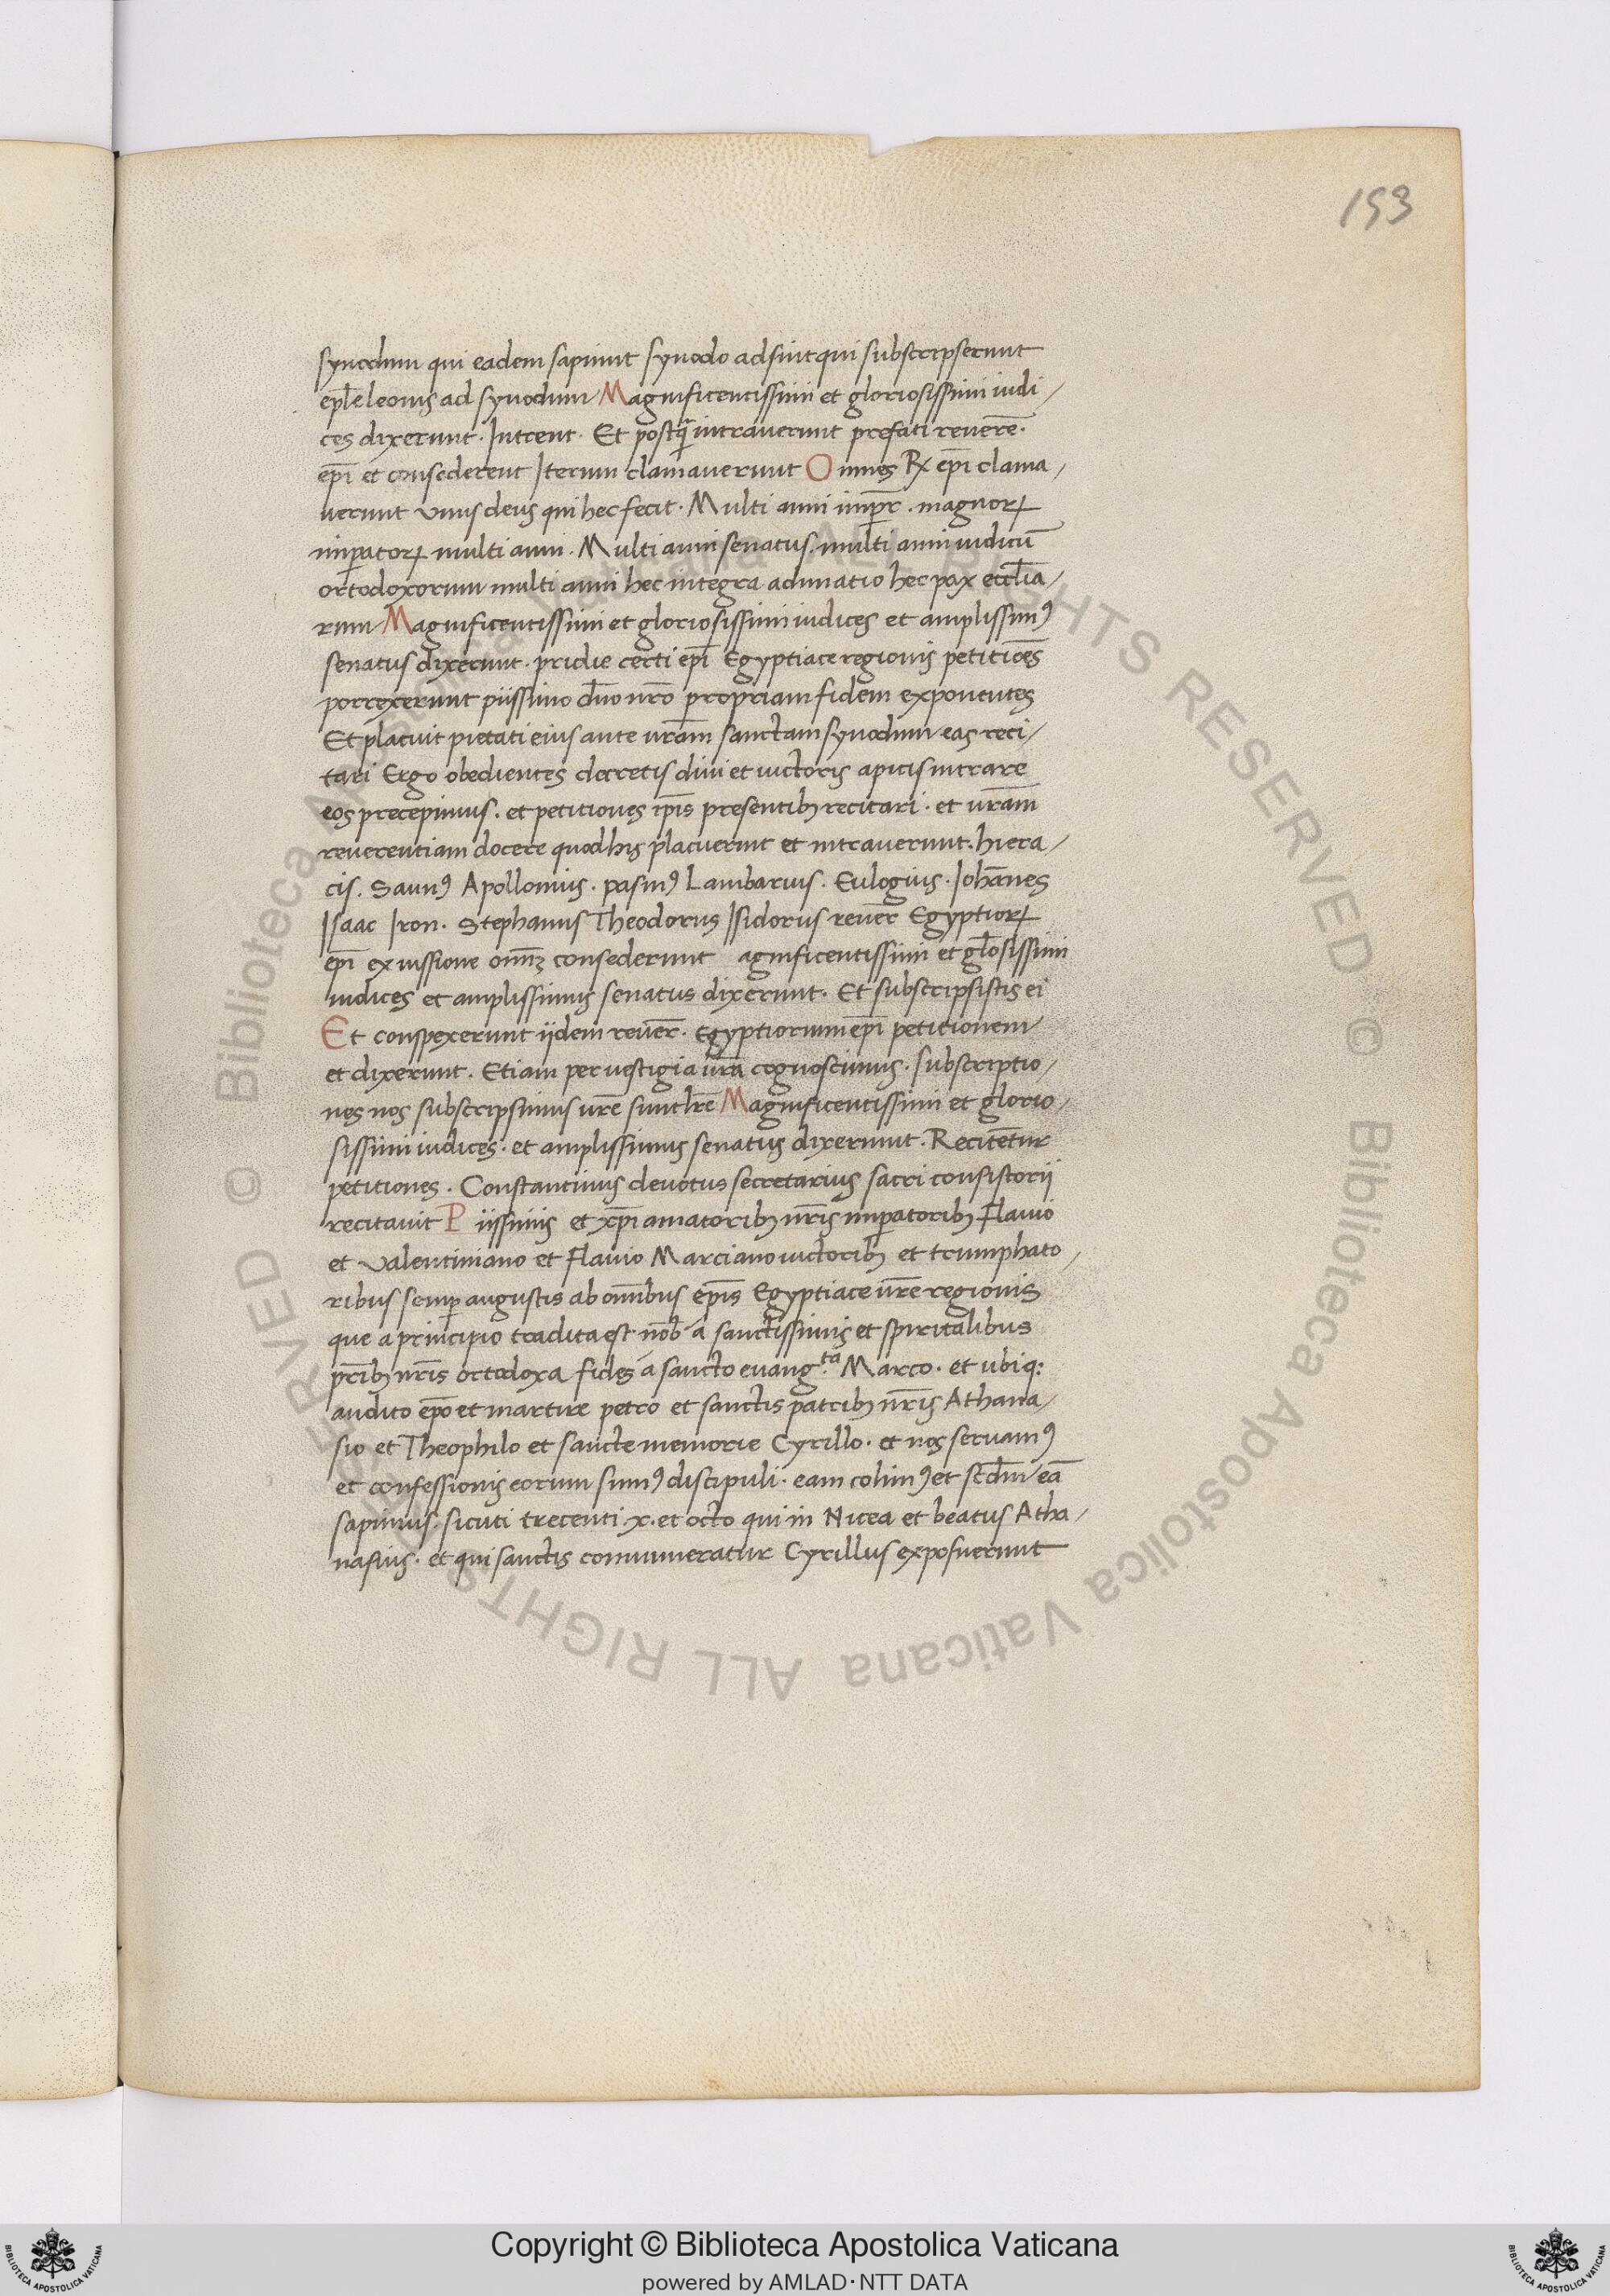 153
synodum qui eadem sapiunt synodo adsint qui subscripserunt
ep̄le leonis ad synodum Magnificentissimi et gloriosissimi iudi/
ces dixerunt. Intrent. Et postq̄ intraverunt prefati reverē.
ep̄i et consederent Iterum clamaverunt Omnes Rx ep̄i clama/
verunt unus deus qui hec fecit. Multi anni imp̄r. magnoꝝ
imꝑatoꝝ multi anni. Multi anni senatus. multi anni iudicū
ortodoxorum multi anni hec integra adunatio hec pax eccl̄ia/
rum Magnificentissimi et gloriosissimi iudices et amplissimꝰ
senatus dixerunt. pridie certi ep̄i Egyptiace regionis petitiōes
porrexerunt piissimo dn̄o nr̄o propriam fidem exponentes
Et placuit pietati eius ante vrām sanctam synodum eas reci/
tari Ergo obedientes decretis divi et victoris apicis intrare
eos precepimus. et petitiones ip̄is presentibꝫ recitari. et vrām
reverentiam docere quod his placuerint et intraverunt. hiera/
cis. Saunꝰ Apollonius. pasinꝰ Lambarius. Eulogius. Johānes
Isaac Iron. Stephanus Theodorus Isidorus rever̄ Egyptioꝝ
ep̄i ex iussione om̄iꝫ consederunt agnificentissimi et gl̄osissimi
iudices et amplissimus senatus dixerunt. Et subscripsistis ei
Et conspexerunt iidem rever̄. Egyptiorum ep̄i petitionem
et dixerunt. Etiam per vestigia vr̄a cognoscimus. subscriptio/
nes nos subscripsimus vrē sunt lr̄e Magnificentissimi et glorio/
sissimi iudices. et amplissimus senatus dixerunt. Recitētur
petitiones. Constantinus devotus secretarius sacri consistorii
recitavit Piissimis et xp̄i amatoribꝫ nr̄is imꝑatoribꝫ Flavio
et valentiniano et Flavio Marciano victoribꝫ et triumphato/
ribus semꝑ augustis ab om̄ibus ep̄is Egyptiace vrē regionis
que a principio tradita est nob̄ á sanctissimis et spiritalibus
pr̄ibꝫ nr̄is ortodoxa fides á sancto evang.ta Marco. et ubiq:
audito ep̄o et martire petro et sanctis patribꝫ nr̄is Athana/
sio et Theophilo et sancte memorie Cyrillo. et nos servamꝰ
et confessionis eorum sumꝰ discipuli. eam colimꝰ et scd̄m eā
sapimus. sicuti trecenti x. et octo qui in Nicea et beatus Atha/
nasius. et qui sanctis connumeratur Cyrillus exposuerunt
© Biblioteca Apostolica Vaticana ALL RIGHTS RESERVED © Biblioteca Apostolica Vaticana ALL RIGHTS RESERVED
BIBLIOTECA APOSTOLICA VATICANA
Copyright © Biblioteca Apostolica Vaticana
powered by AMLAD·NTT DATA
BIBLIOTECA APOSTOLICA VATICANA